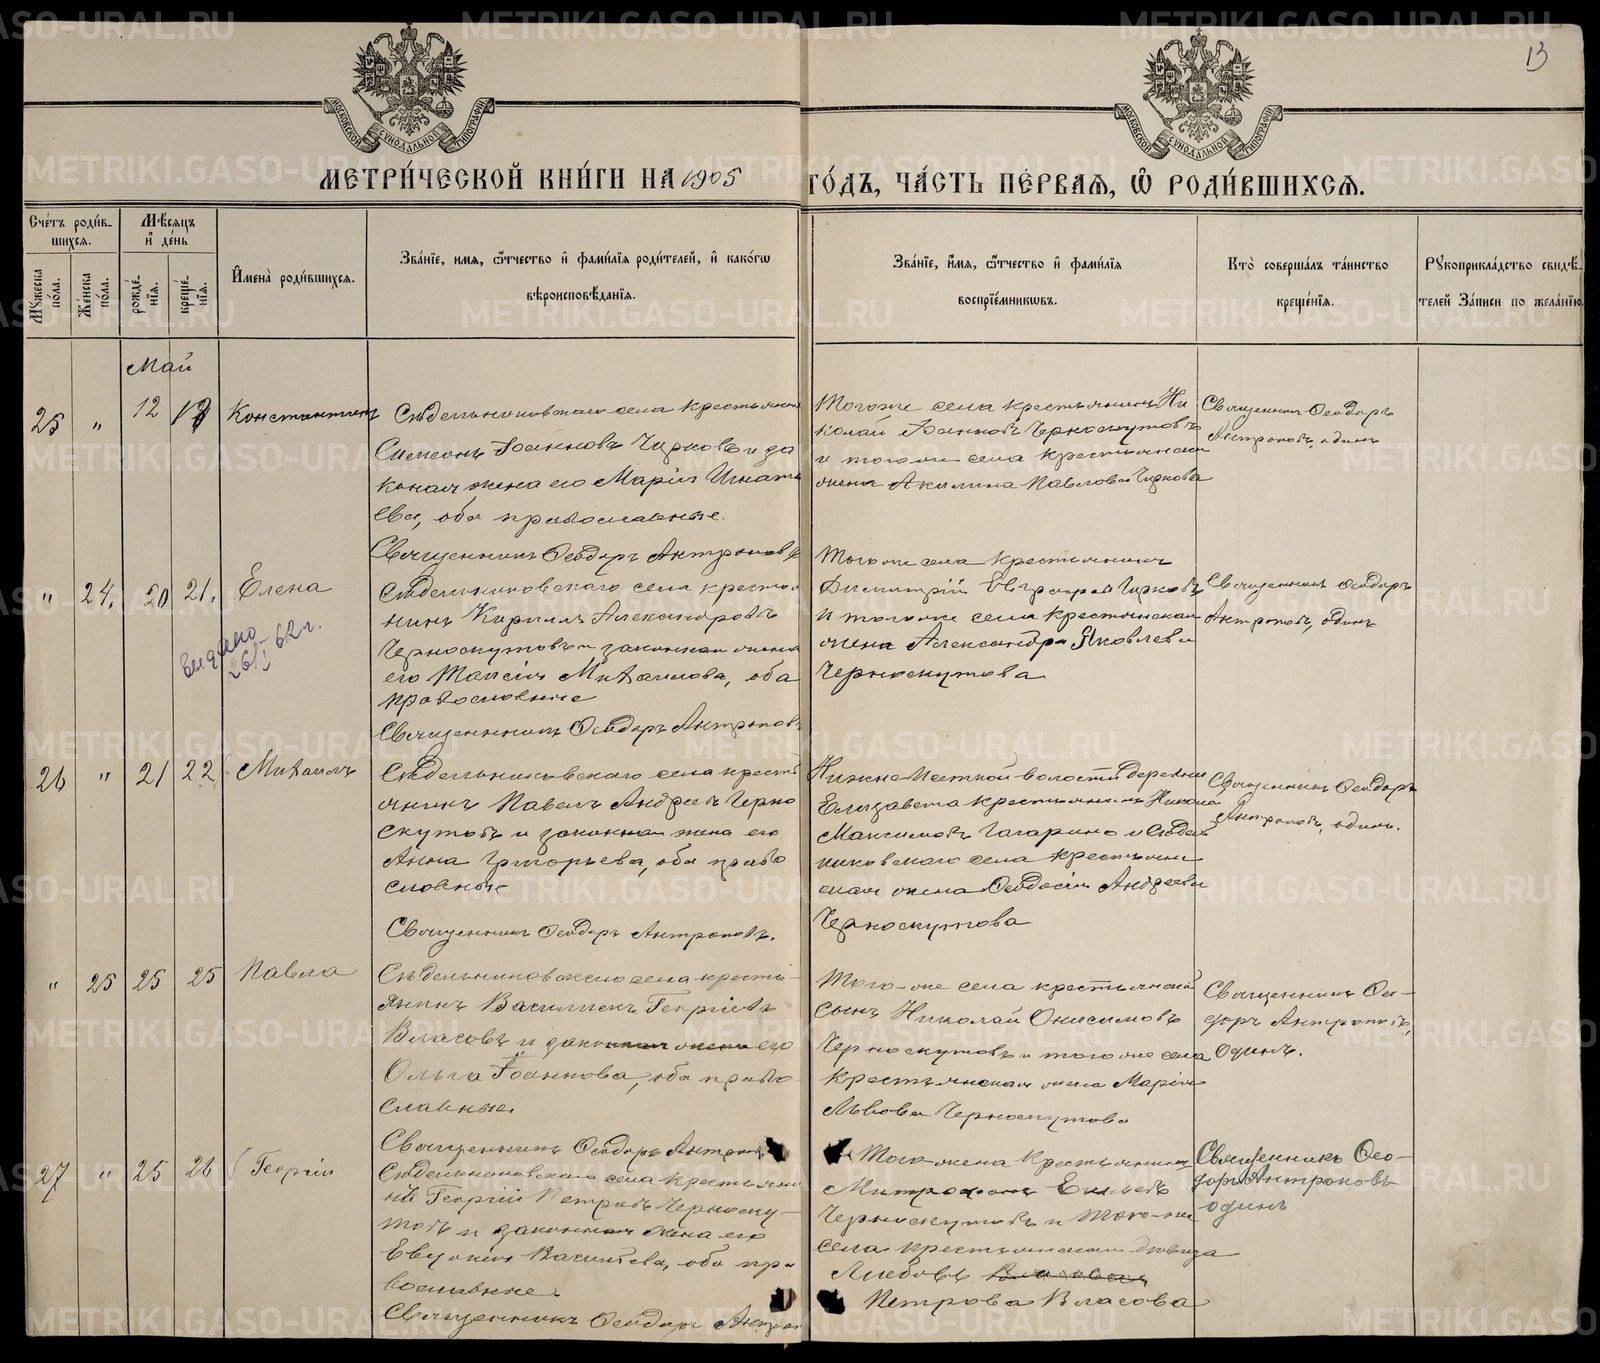 13
МОСКОВСКОЙ СѴНОДАЛЬНОЙ ТИПОГРАФІИ
МОСКОВСКОЙ СѴНОДАЛЬНОЙ ТИПОГРАФІИ
МЕТРИ́ЧЕСКОЙ КНИ́ГИ НА 1905
ГО́ДЪ, ЧА́СТЬ ПЕ́РВАѦ, Ѡ҆ РОДИ́ВШИХСѦ.
Счéтъ роди́в-
шихсѧ.
Мꙋ́жеска
по́ла.
Же́нска
по́ла.
Мѣ́сѧцъ
и҆ де́нь
рожде́-
нїѧ.
креще́-
нїѧ.
И҆мена̀ роди́вшихсѧ.
Зва́нїе, имѧ, ѻ҆́тчество и҆ фами́лїѧ роди́телей, и҆ како́гѡ
вѣроисповѣ́данїѧ.
Зва́нїе, и҆́мѧ, ѻ҆́тчество и҆ фами́лїѧ
воспрїе́мникѡвъ.
Кто̀ соверша́лъ та́инство
креще́нїѧ.
Рꙋкоприкла́дство свидѣ́-
телей За́писи по жела́нїю.
Май
25 " 12 13 Константинъ
Сѣдельниковскаго села крестьянинъ
Симеонъ Іоанновъ Чирковъ и за
конная жена его Марія Игнать
ева, оба православные.
Священникъ Ѳеодоръ Антроповъ
Того же села крестьянинъ Ни
колай Іоанновъ Черноскутовъ
и того же села крестьянская
жена Акилина Павлова Чиркова
Священникъ Ѳеодоръ
Антроповъ, одинъ
" 24. 20 21. Елена
выдано
26/I-62 г.
Сѣдельниковскаго села крестья
нинъ Кириллъ Александровъ
Черноскутовъ и законная жена
его Таисія Михаилова, оба
православные
Священникъ Ѳеодоръ Антроповъ
Того же села крестьянинъ
Димитрій Евграфовъ Чирковъ
и того же села крестьянская
жена Александра Яковлева
Черноскутова
Священникъ Ѳеодоръ
Антроповъ, одинъ
26 " 21 22 Михаилъ
Сѣдельниковскаго села кресть
янинъ Павелъ Андреевъ Черно
скутовъ и законная жена его
Анна Григорьева, оба право
славные
Священникъ Ѳеодоръ Антроповъ.
волости деревни
Елизавета крестьянинъ
Максимовъ Гагаринъ и Сѣдель
никовскаго села крестьян
ская жена Ѳеодосія Андреева
Черноскутова
Священникъ Ѳеодоръ
Антроповъ, одинъ.
" 25 25 25 Павла
Сѣдельниковскаго села кресть-
янинъ Василискъ Георгіевъ
Власовъ и законная жена его
Ольга Іоаннова, оба право-
славные.
Священникъ Ѳеодоръ Антропов
Того-же села крестьянскій
сынъ Николай Онисимовъ
Черноскутовъ и того же села
крестьянская жена Марія
Львова Черноскутова
Священникъ Ѳео-
доръ Антроповъ,
одинъ.
27 " 25 26 Георгій
Сѣдельниковскаго села крестьяни
нъ Георгій Петровъ Черноску-
товъ и законная жена его
Евдокія Васильева, оба пра
вославные.
Священникъ Ѳеодоръ Антропов
Того-же села крестьянинъ
Митрофанъ
Черноскутовъ и того-же
села крестьянская девица
Любовь
Петрова Власова
Священникъ Ѳео-
доръ Антроповъ
одинъ
METRIKI.GASO-URAL.RU